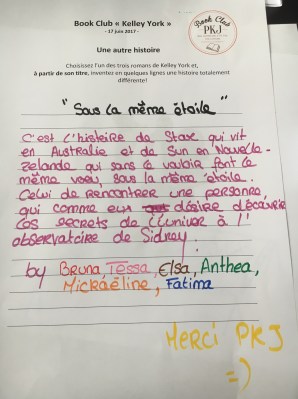 Book Club « Kelley York »
- 17 juin 2017 -
Book Club
PKJ
Une autre histoire
Choisissez l'un des trois romans de Kelley York et,
à partir de son titre, inventez en quelques lignes une histoire totalement
différente!
"Sous la même étoile"
C'est l'histoire de Stace qui vit
en Australie et de Sun en Nouvelle-
zelande qui sans le vouloir font le
même voeu, sous la même étoile.
Celui de rencontrer une personne
qui comme eux désire découvrir
les secrets de l'univer à l'
observatoire de Sidney.
by Bruna, Tessa, Elsa, Anthea,
Mickaéline, Fatima
Merci PKJ
=)